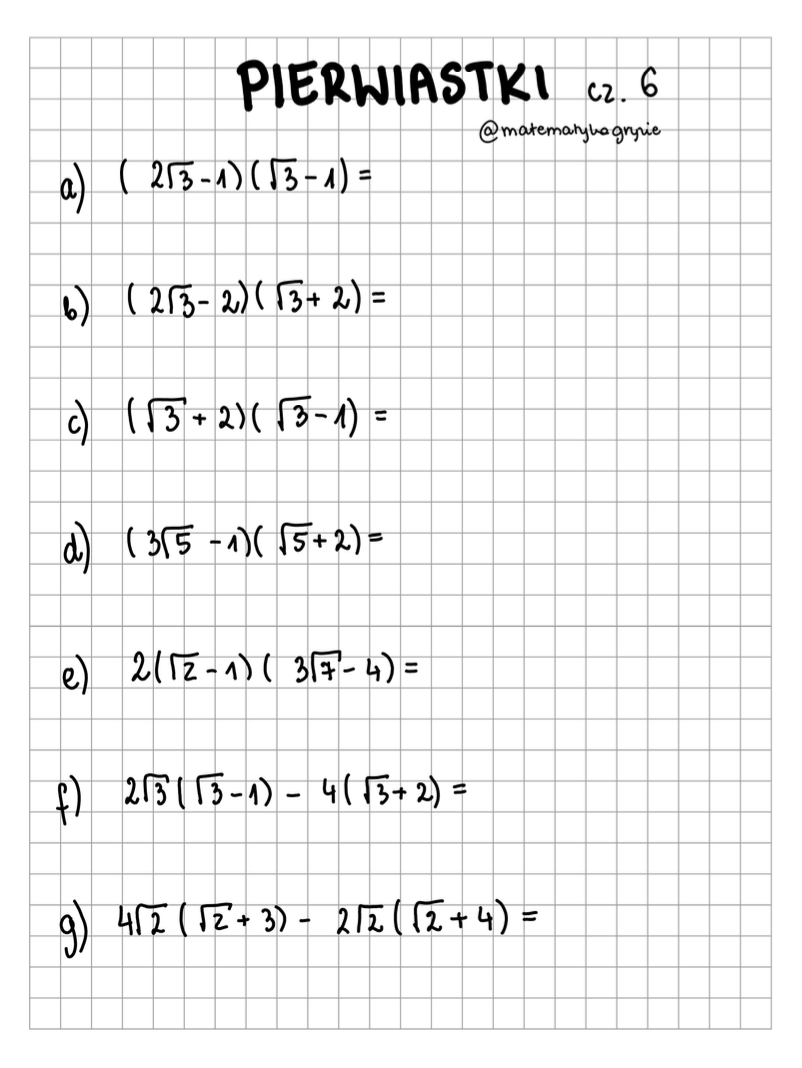 PIERWIASTKI cz. 6
@matematykagryzie
a) ( 2√3 - 1)(√3 - 1) =
b) ( 2√3 - 2)( √3 + 2) =
c) (√3 + 2)( √3 - 1) =
d) ( 3√5 - 1)( √5 + 2) =
e) 2(√2 - 1) ( 3√7 - 4) =
f) 2√3 ( √3 - 1) - 4( √3 + 2) =
g) 4√2 ( √2 + 3) - 2√2 ( √2 + 4) =